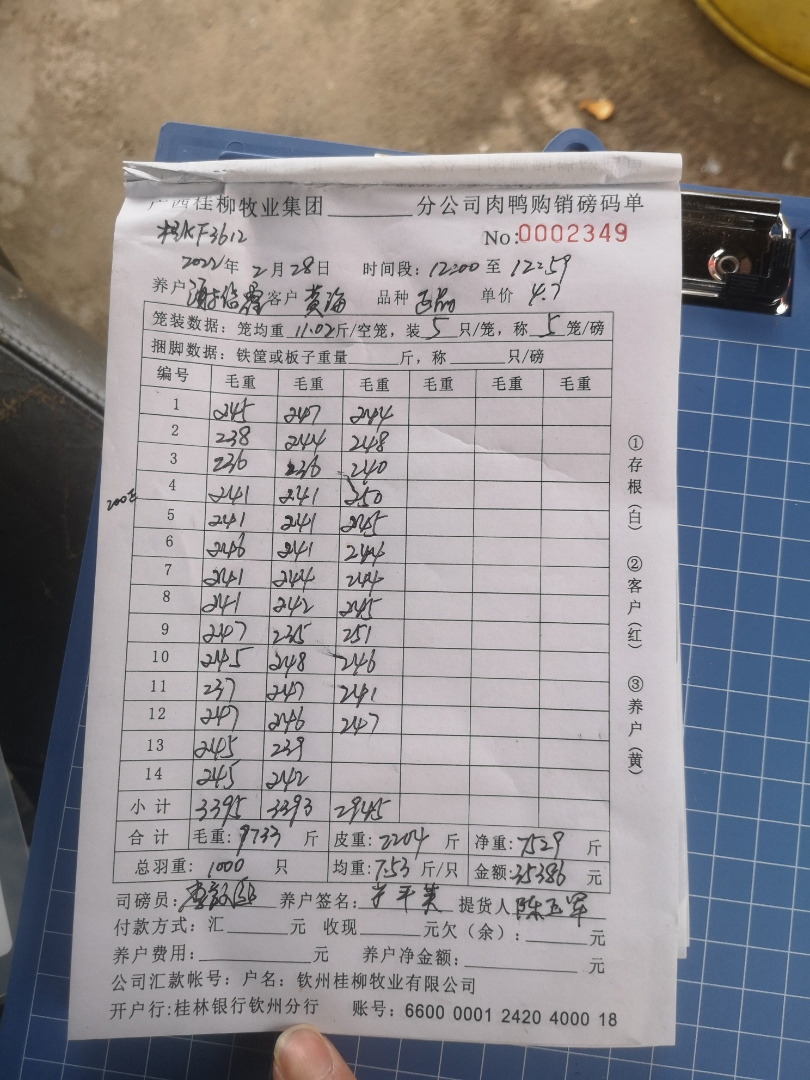 广西桂柳牧业集团________分公司肉鸭购销磅码单
KF3612
No:0002349
2022年 2月28日 时间段: 12:00 至 12:59
养户 客户 黄海 品种 正品 单价 4.7
笼装数据: 笼均重 11.02斤/空笼, 装 5 只/笼, 称 5 笼/磅
捆脚数据: 铁筐或板子重量______斤, 称______只/磅
编号 毛重 毛重 毛重 毛重 毛重 毛重
1 245 247 244
2 238 244 248
3 236 236 240
200只
4 241 241 250
5 241 241 245
6 246 241 244
7 241 244 244
8 241 242 245
9 247 235 251
10 245 248 246
11 237 247 241
12 247 246 247
13 245 239
14 245 242
小计 3395 3393 2945
合计 毛重: 9733 斤 皮重: 2204 斤 净重: 7529 斤
总羽重: 1000 只 均重: 7.53 斤/只 金额: 35386 元
司磅员: 养户签名: 提货人 陈玉军
付款方式: 汇______元 收现______元欠(余): ______元
养户费用: ______元 养户净金额: ______元
公司汇款帐号: 户名: 钦州桂柳牧业有限公司
开户行:桂林银行钦州分行 账号: 6600 0001 2420 4000 18
①存根(白) ②客户(红) ③养户(黄)